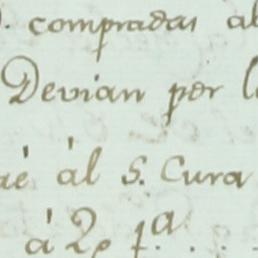 compradas al
Devian per l
é ál S. Cura
á 2